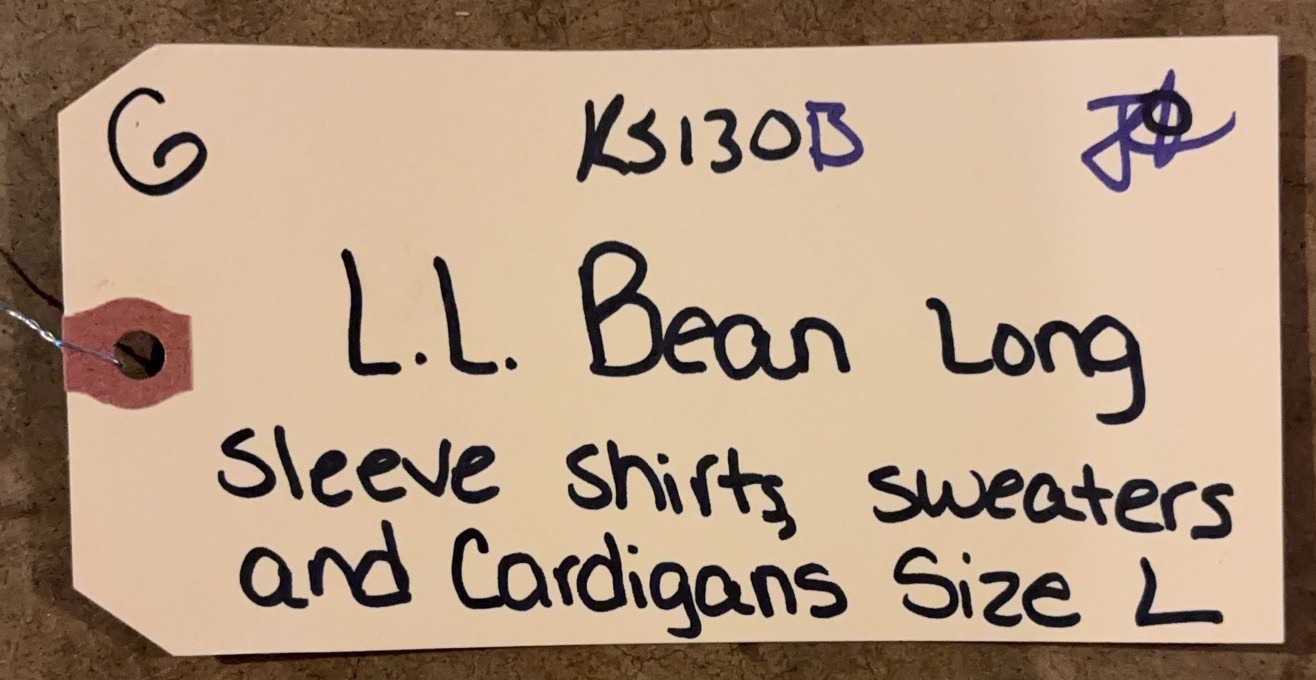 G KS130B
L.L. Bean Long
Sleeve shirts, sweaters
and Cardigans Size L